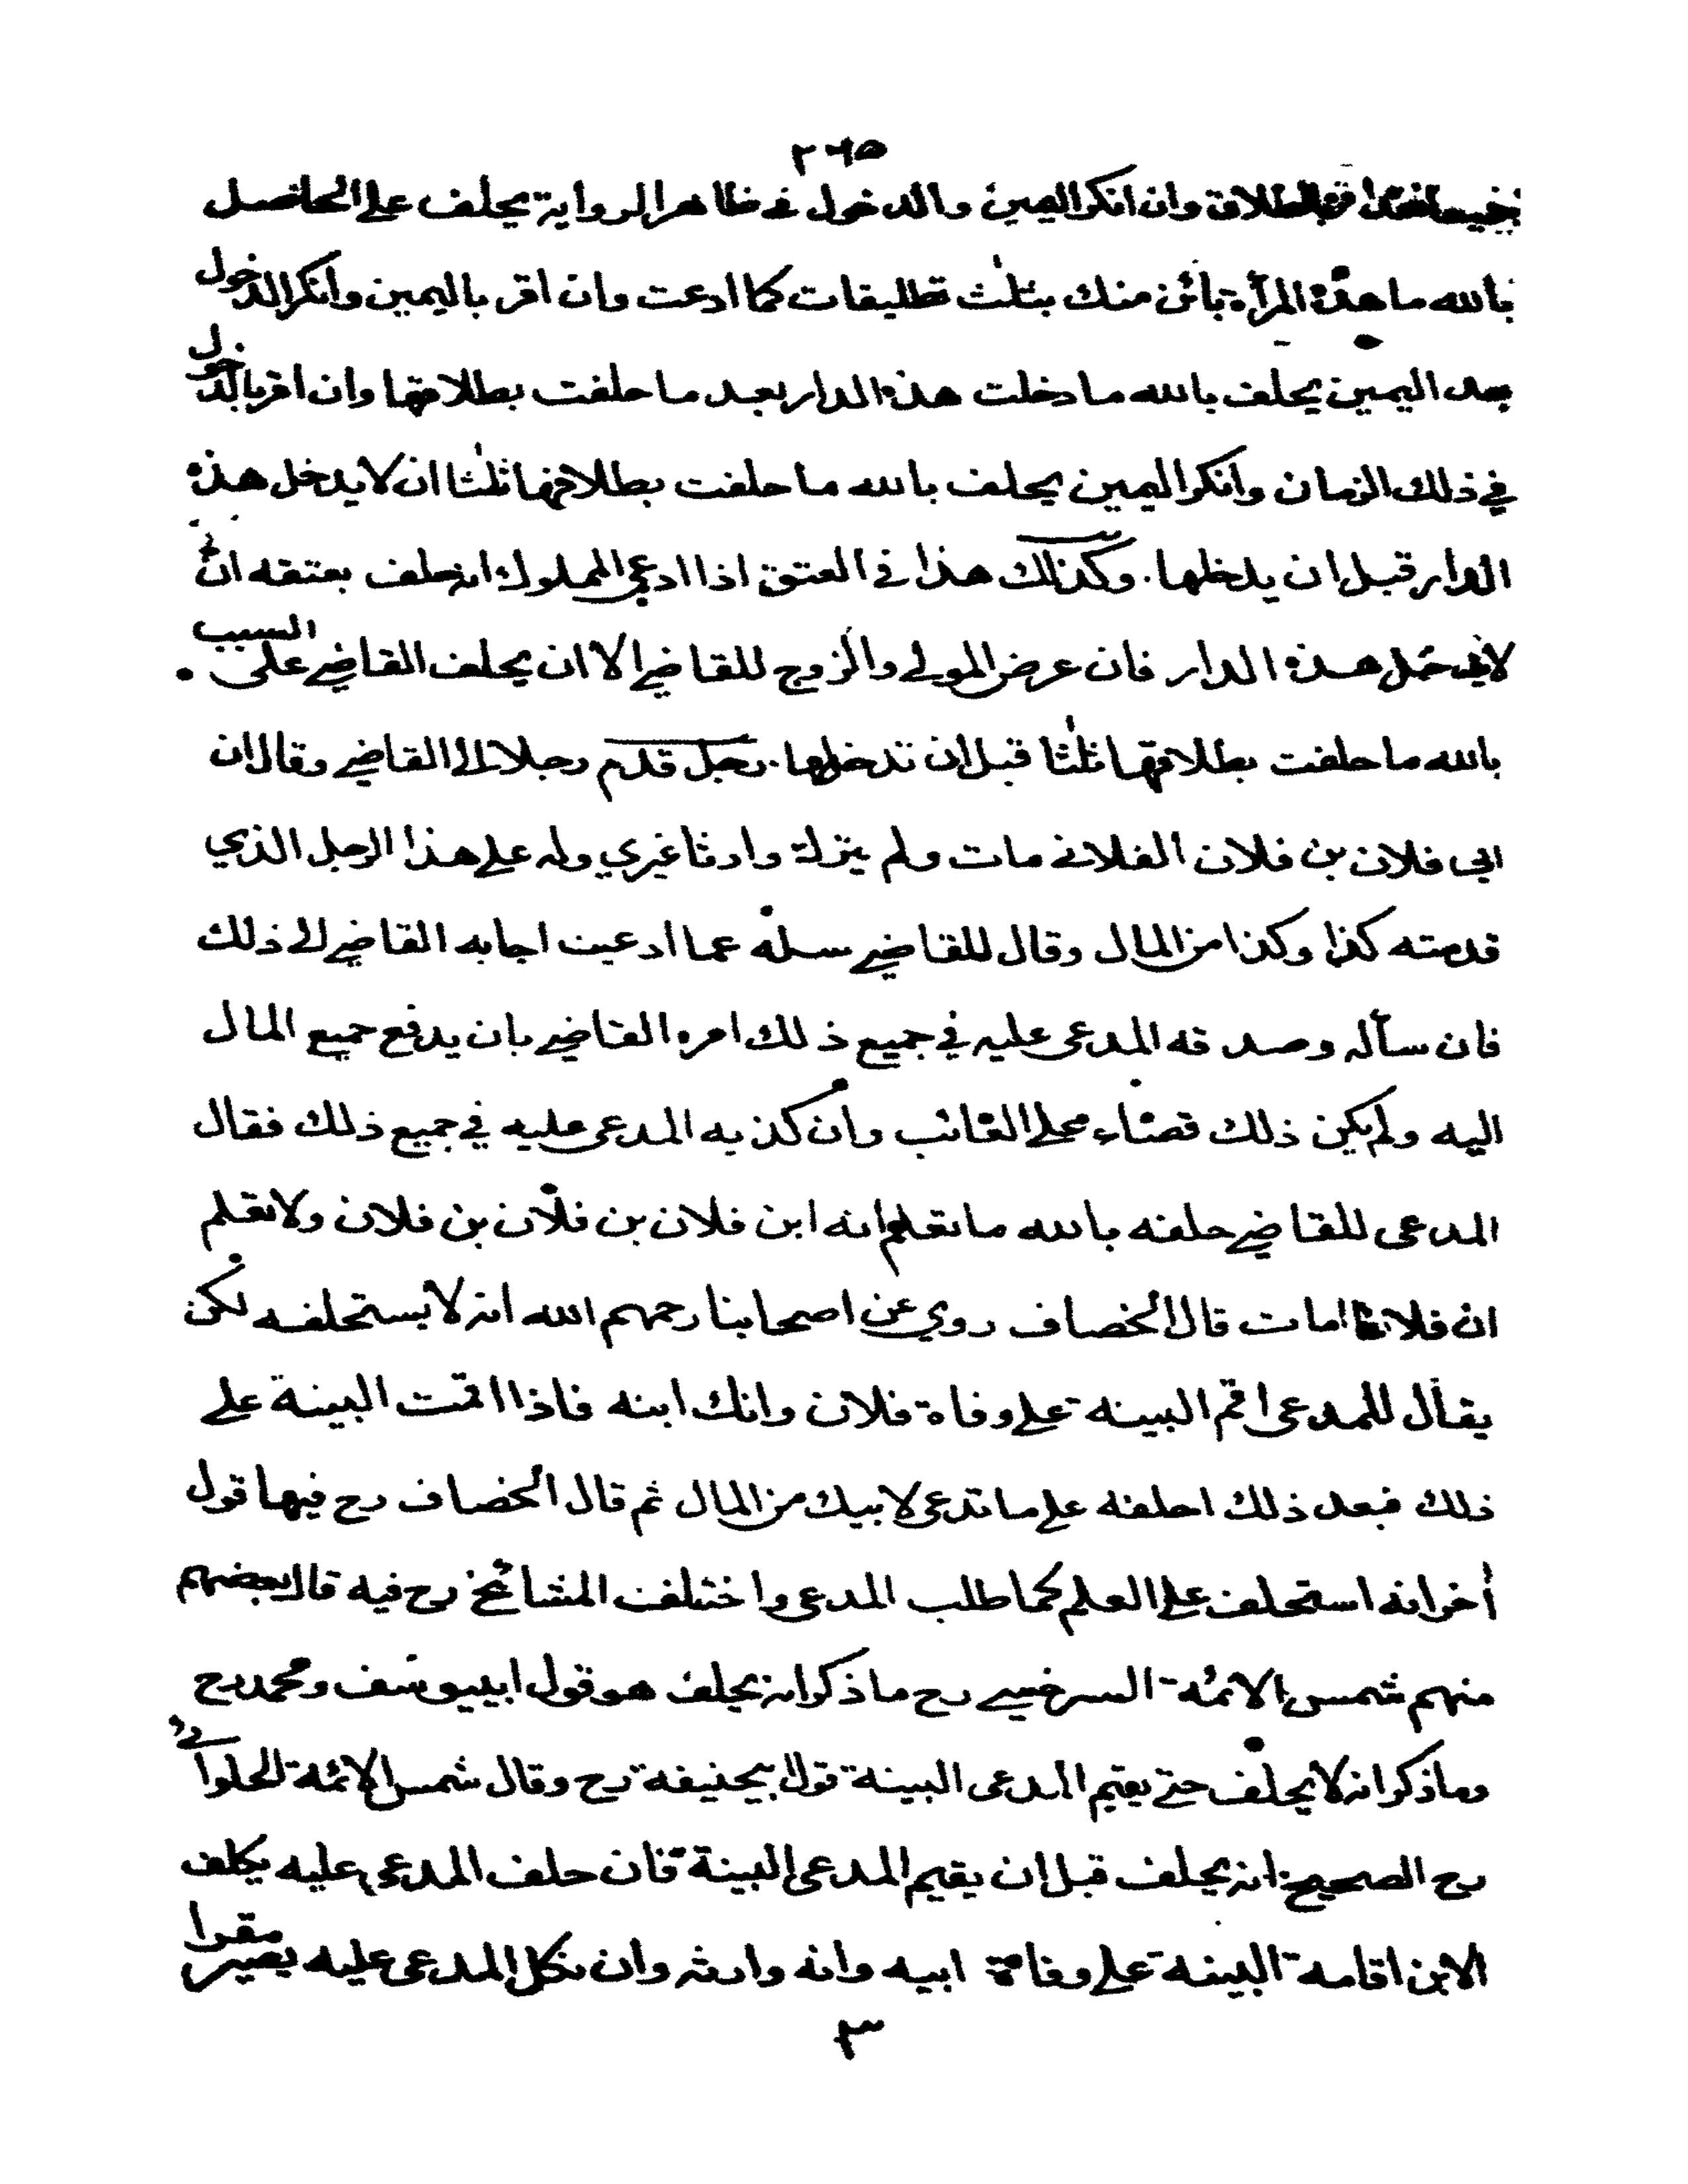 ٢٦٥
الطلاق وان انكر اليمين والدخول في ظاهر الرواية يحلف على الحاصل
بالله ما هذه المرأة بائن منك بثلث تطليقات كما ادعت وان اقر باليمين وانكر الدخول
بعد اليمين يحلف بالله ما دخلت هذه الدار بعد ما حلفت بطلاقها وان اقر بالدخول
في ذلك الزمان وانكر اليمين يحلف بالله ما حلفت بطلاقها ثلثا ان لا يدخل هذه
الدار قبل ان يدخلها . وكذلك هذا في العتق اذا ادعى المملوك انه حلف بعتقه ان
هذه الدار فان عرض المولى والزوج للقاضي الا ان يحلف القاضي على السبب .
بالله ما حلفت بطلاقها ثلثا قبل ان تدخلها . رجل قدم رجلا الى القاضي وقال ان
ابي فلان بن فلان الفلاني مات ولم يترك وارثا غيري وله على هذا الرجل الذي
قدمته كذا وكذا من المال وقال للقاضي سله عما ادعيت اجابه القاضي الى ذلك
فان سأله وصدقه المدعى عليه في جميع ذلك امره القاضي بان يدفع جميع المال
اليه ولم يكن ذلك قضاء على الغائب وان كذبه المدعى عليه في جميع ذلك فقال
المدعى للقاضي حلفه بالله ما تعلم انه ابن فلان بن فلان بن فلان ولا تعلم
ان فلانا مات قال الخصاف روي عن اصحابنا رحمهم الله انه لا يستحلفه لكن
يقال للمدعى اقم البينه على وفاة فلان وانك ابنه فاذا اقمت البينة على
ذلك فبعد ذلك احلفه على ما تدعى لابيك من المال ثم قال الخصاف رح فيها قول
أخر انه استحلف على العلم كما طلب المدعى واختلف المشائخ رح فيه قال بعضهم
منهم شمس الائمة السرخسي رح ما ذكر انه يحلف هو قول ابي يوسف ومحمد رح
وما ذكر انه لا يحلف حتى يقيم المدعى البينة قول ابي حنيفة رح وقال شمس الائمة الحلواني
رح الصحيح انه يحلف قبل ان يقيم المدعى البينة فان حلف المدعى عليه يكلف
الابن اقامة البينة على وفاة ابيه وانه وارثه وان نكل المدعى عليه يصير مقرا
٣